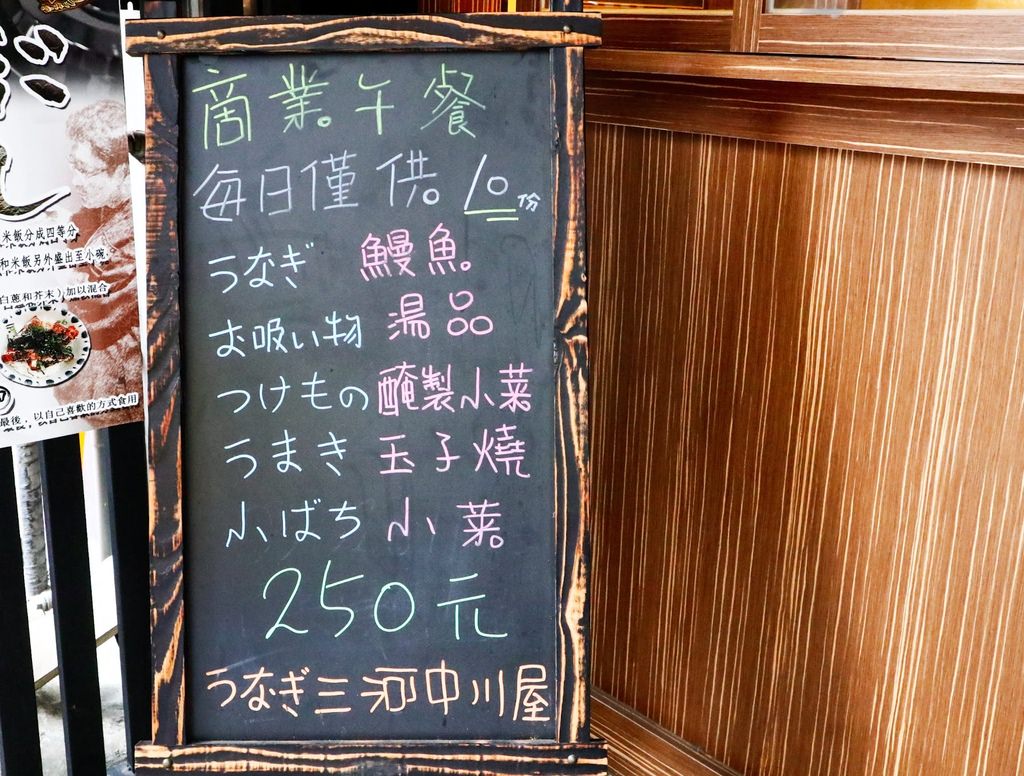 商業午餐
每日僅供10份
うなぎ 鰻魚
お吸い物 湯品
つけもの 醃製小菜
うまき 玉子燒
小ばち 小菜
250元
うなぎ三河中川屋
米飯分成四等分
和米飯另外盛出至小碗
白蔥和芥末)加以混合
最後,以自己喜歡的方式食用